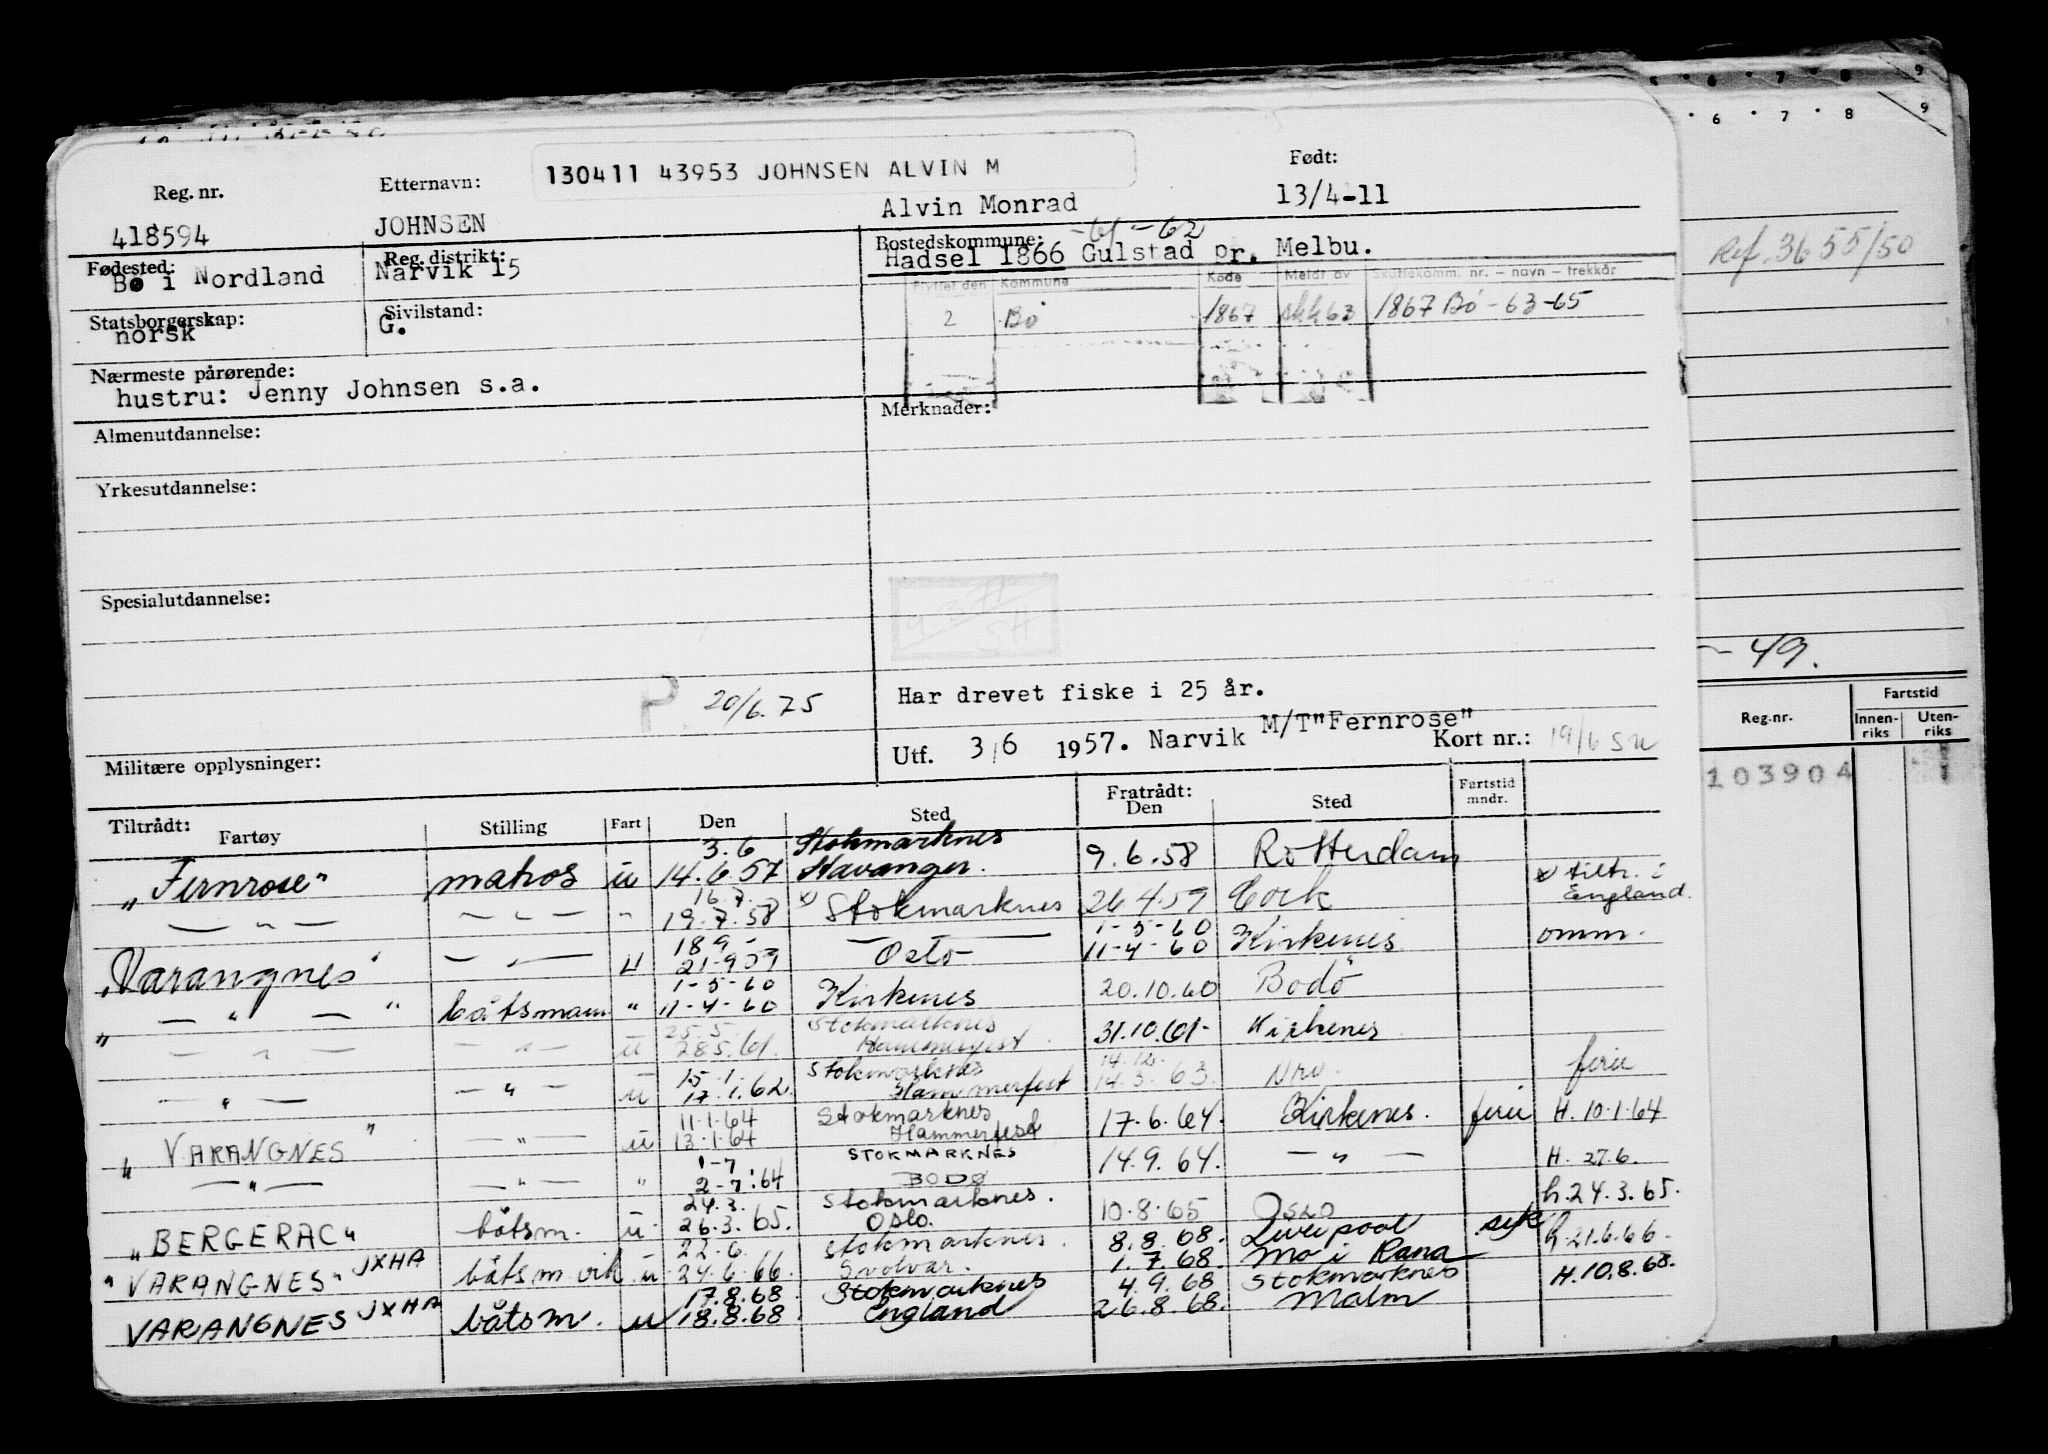 130411 43953 JOHNSEN ALVIN M
Reg. nr. Etternavn: Født:
418594 JOHNSEN Alvin Monrad 13/4-11
Fødested: Reg. distrikt: Bostedskommune: -61-62
Bø i Nordland Narvik 15 Hadsel 1866 Gulstad pr. Melbu.
Flyttet den Kommune Kode Meldt av Skattekomm. nr. - navn - trekkår
2 Bø 1867 skk63 1867 Bø - 63-65
Statsborgerskap: Sivilstand:
norsk G.
Nærmeste pårørende:
hustru: Jenny Johnsen s.a.
Almenutdannelse: Merknader:
Yrkesutdannelse:
Spesialutdannelse:
P. 20/6.75
Har drevet fiske i 25 år.
Utf. 3/6 1957. Narvik M/T"Fernrose" Kort nr.: 19/6
Militære opplysninger:
Tiltrådt: Fratrådt:
Fartøy Stilling Fart Den Sted Den Sted Fartstid mndr.
3.6 Stokmarknes
"Fernrose" matros u 14.6.57 Stavanger. 9.6.58 Rotterdam
16.7. x tiltr. i England.
— " — — " — " 19.7.58 x Stokmarknes 26.4.59 Cork
18.9 - — 1-5-60
"Varangnes" — " — u 21.9.59 Oslo 11-4-60 Kirkenes omm.
1-5-60
" — " — " båtsmann " 11-4-60 Kirkenes 20.10.60 Bodö
25.5. Stokmarknes
— " — — " — u 28.5.61. Hammerfest. 31.10.61- Kirkenes
15.1. Stokmarknes 14.12.
— " — — " — u 17.1.62 Hammerfest 14.3.63. ferie
11-1-64 Stokmarknes
" VARANGNES " — " — u 13-1-64 Hammerfest 17.6.64. Kirkenes. ferie H. 10-1-64
1-7 STOKMARKNES
— " — — " — " 2-7:64 BODØ 14.9.64. — " — H. 27.6.
24.3. Stokmarknes.
"BERGERAC" båtsm. u 26.3.65. Oslo. 10.8.65 OSLO h.24.3.65.
22.6. Stokmarknes. 8.8.68. Liverpool
"VARANGNES" JXHA båtsm vik u 24.6.66. Svolvær. 1.7.68. Mo i Rana syk h.21.6.66.
17.8.68 Stokmarknes 4.9.68 Stokmarknes
VARANGNES JXHA båtsm. u 18.8.68. England 26.8.68. Malm H.10.8.68.
5 6 7 8 9
6 7 8 9
Ref. 3655/50
49.
Reg.nr. Fartstid
Innen-riks Uten-riks
103904